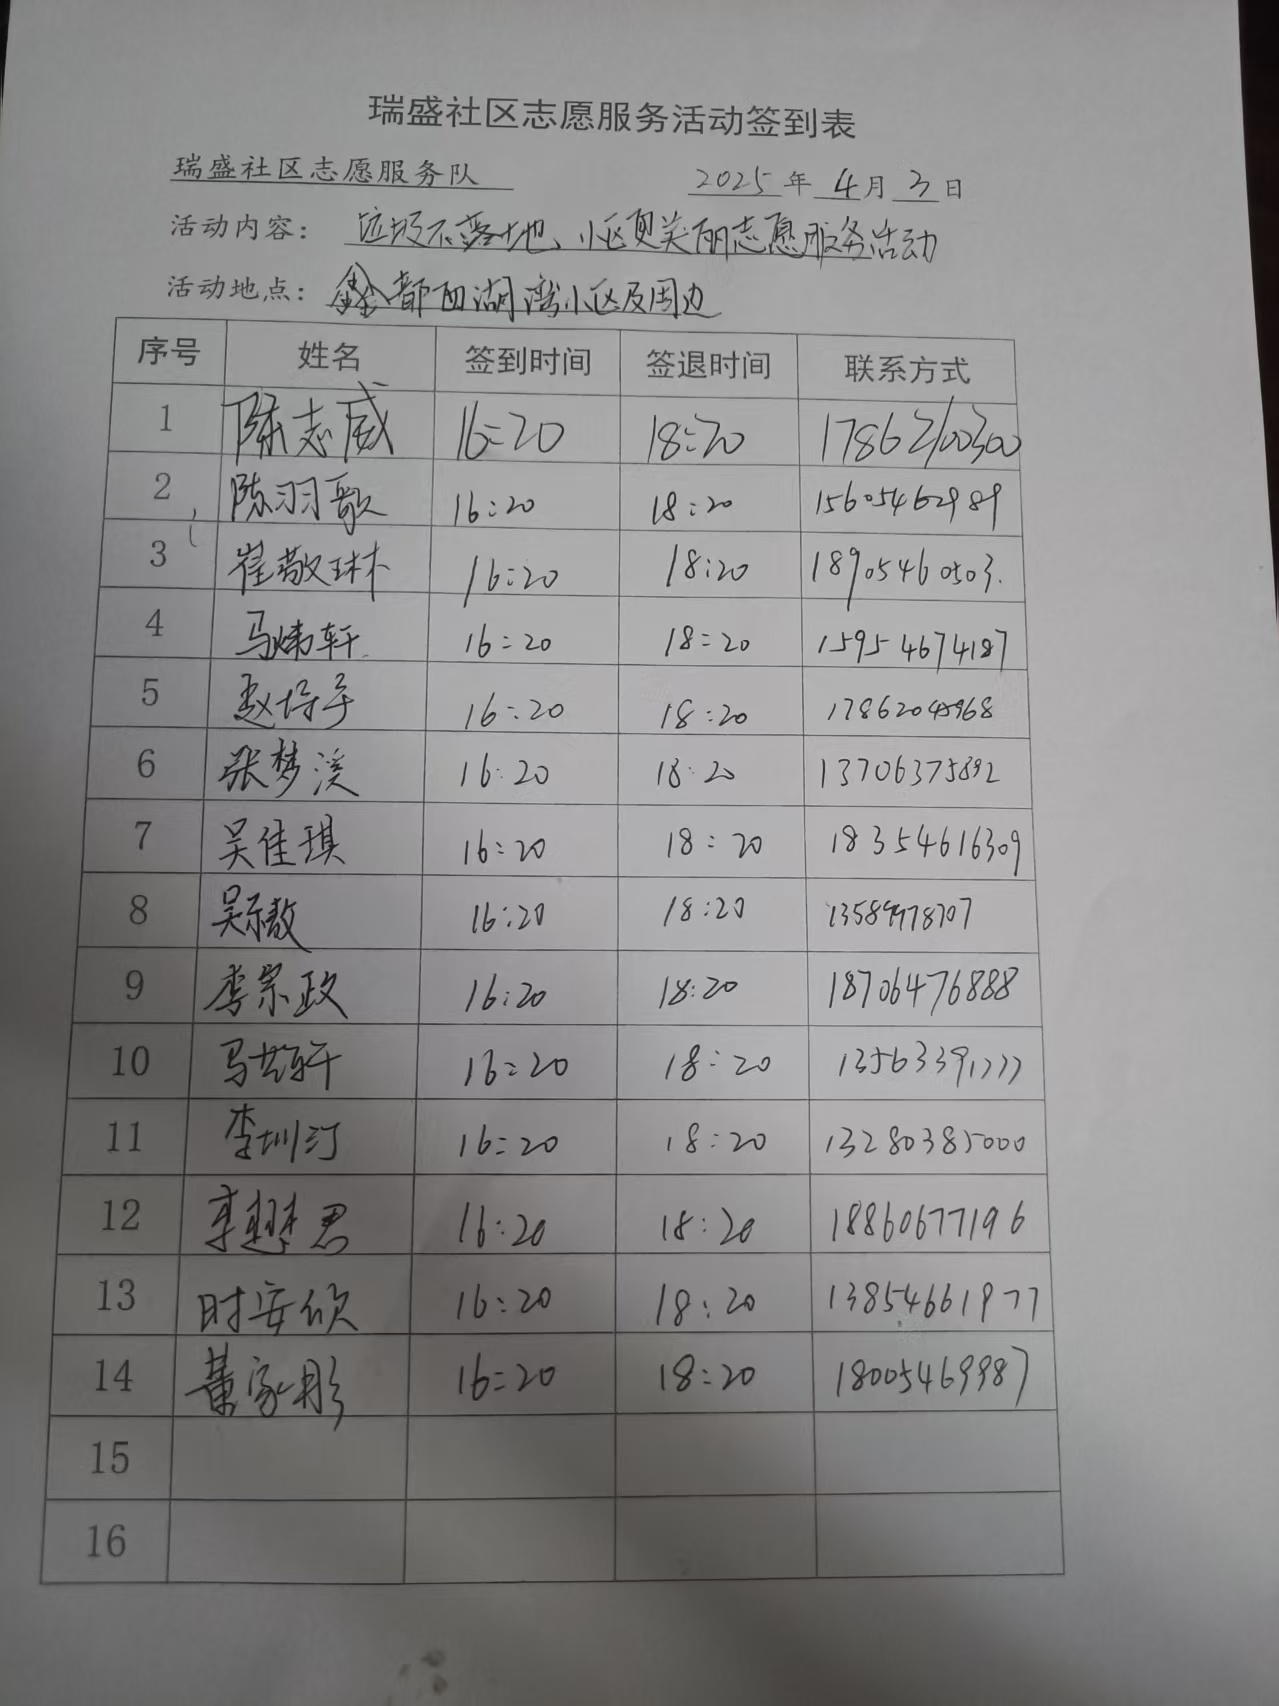 瑞盛社区志愿服务活动签到表
瑞盛社区志愿服务队 2025年4月3日
活动内容：垃圾不落地、小区更美丽志愿服务活动
活动地点：鑫都西湖湾小区及周边
序号 姓名 签到时间 签退时间 联系方式
1 陈志威 16:20 18:20 17862100300
2 陈羽歌 16:20 18:20 15605462989
3 崔敬琳 16:20 18:20 18905460503.
4 马炜轩 16:20 18:20 15954674187
5 赵梓宇 16:20 18:20
6 张梦溪 16:20 18:20 13706375892
7 吴佳琪 16:20 18:20 18354616309
8 16:20 18:20
9 李宗政 16:20 18:20 18706476888
10 16:20 18:20
11 李圳汀 16:20 18:20 13280385000
12 君 16:20 18:20 18860677196
13 时安欣 16:20 18:20 13854661977
14 董家彤 16:20 18:20 18005469987
15
16